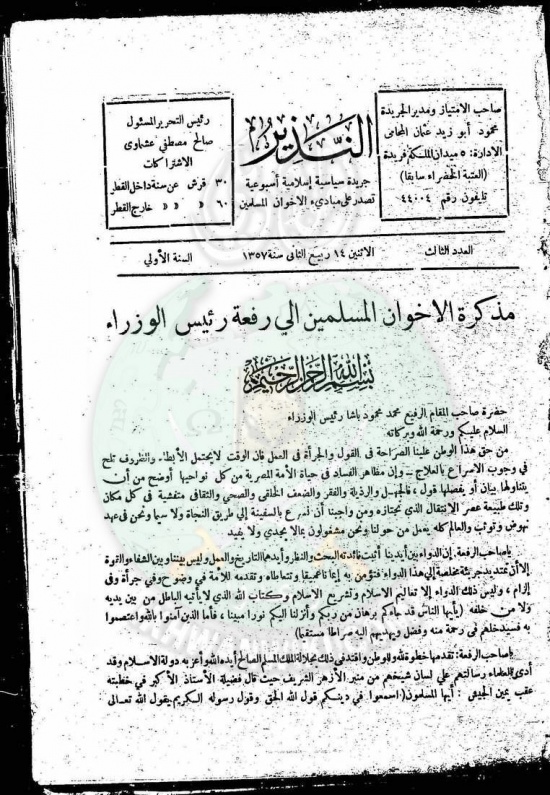 صاحب الامتياز ومدير الجريدة
محمود أبو زيد عثمان المحامى
الادارة: ٥ ميدان الملكة فريدة
(العتبة الخضراء سابقا)
تليفون رقم ٤٤٠٠٤
النذير
جريدة سياسية إسلامية أسبوعية
تصدر على مبادىء الاخوان المسلمين
رئيس التحرير المسئول
صالح مصطفى عشماوى
الاشتراكات
٣٠ قرش عن سنة داخل القطر
٦٠ » » » خارج القطر
العدد الثالث
الاثنين ١٤ ربيع الثانى سنة ١٣٥٧
السنة الأولي
مذكرة الاخوان المسلمين الي رفعة رئيس الوزراء
بسم الله الرحمن الرحيم
حضرة صاحب المقام الرفيع محمد محمود باشا رئيس الوزراء
السلام عليكم ورحمة الله وبركاته
من حق هذا الوطن علينا الصراحة فى القول والجرأة فى العمل فان الوقت لا يحتمل الأبطاء والظروف تلح
فى وجوب الاسراع بالعلاج وإن مظاهر الفساد فى حياة الأمة المصرية من كل نواحيها أوضح من أن
يتناولها بيان أو يفصلها قول، فالجهل والرذيلة والفقر والضعف الخلقى والصحي والثقافى متفشية فى كل مكان
وتلك طبيعة عصر الانتقال الذي نجتازه ومن واجبنا أن نسرع بالسفينة إلي طريق النجاة ولا سيما ونحن فى عهد
نهوض وتوثب والعالم كله يعمل من حولنا ونحن مشغولون بما لا يجدي ولا يفيد
يا صاحب الرفعة. إن الدواء بين أيدينا أثبت فائدته البحث والنظر وأيدهما التاريخ والعمل وليس بيننا وبين الشفاء والقوة
إلا أن تمتد يد جريئة مخلصة إلي هذا الدواء، فنؤمن به إيمانا عميقا ونتعاطاه ونقدمه للأمة في وضوح وفي جرأة وفى
إلزام، وليس ذلك الدواء إلا تعاليم الاسلام وتشريع الاسلام وكتاب الله الذي لا يأتيه الباطل من بين يديه
ولا من خلفه (يأيها الناس قد جاءكم برهان من ربكم وأنزلنا اليكم نورا مبينا، فأما الذين آمنوا بالله واعتصموا
به فسيدخلهم فى رحمة منه وفضل ويهديهم اليه صراطا مستقيما)
يا صاحب الرفعة: تقدمها خطوة لله وللوطن واقتد فى ذلك بجلالة الملك المسلم الصالح أيده الله وأعز به دولة الاسلام وقد
أدى العلماء رسالتهم علي لسان شيخهم من منبر الأزهر الشريف حيث قال فضيلة الأستاذ الأكبر في خطبته
عقب يمين الجيش: أيها المسلمون (اسمعوا فى دينكم قول الله الحق وقول رسوله الكريم يقول الله تعالى